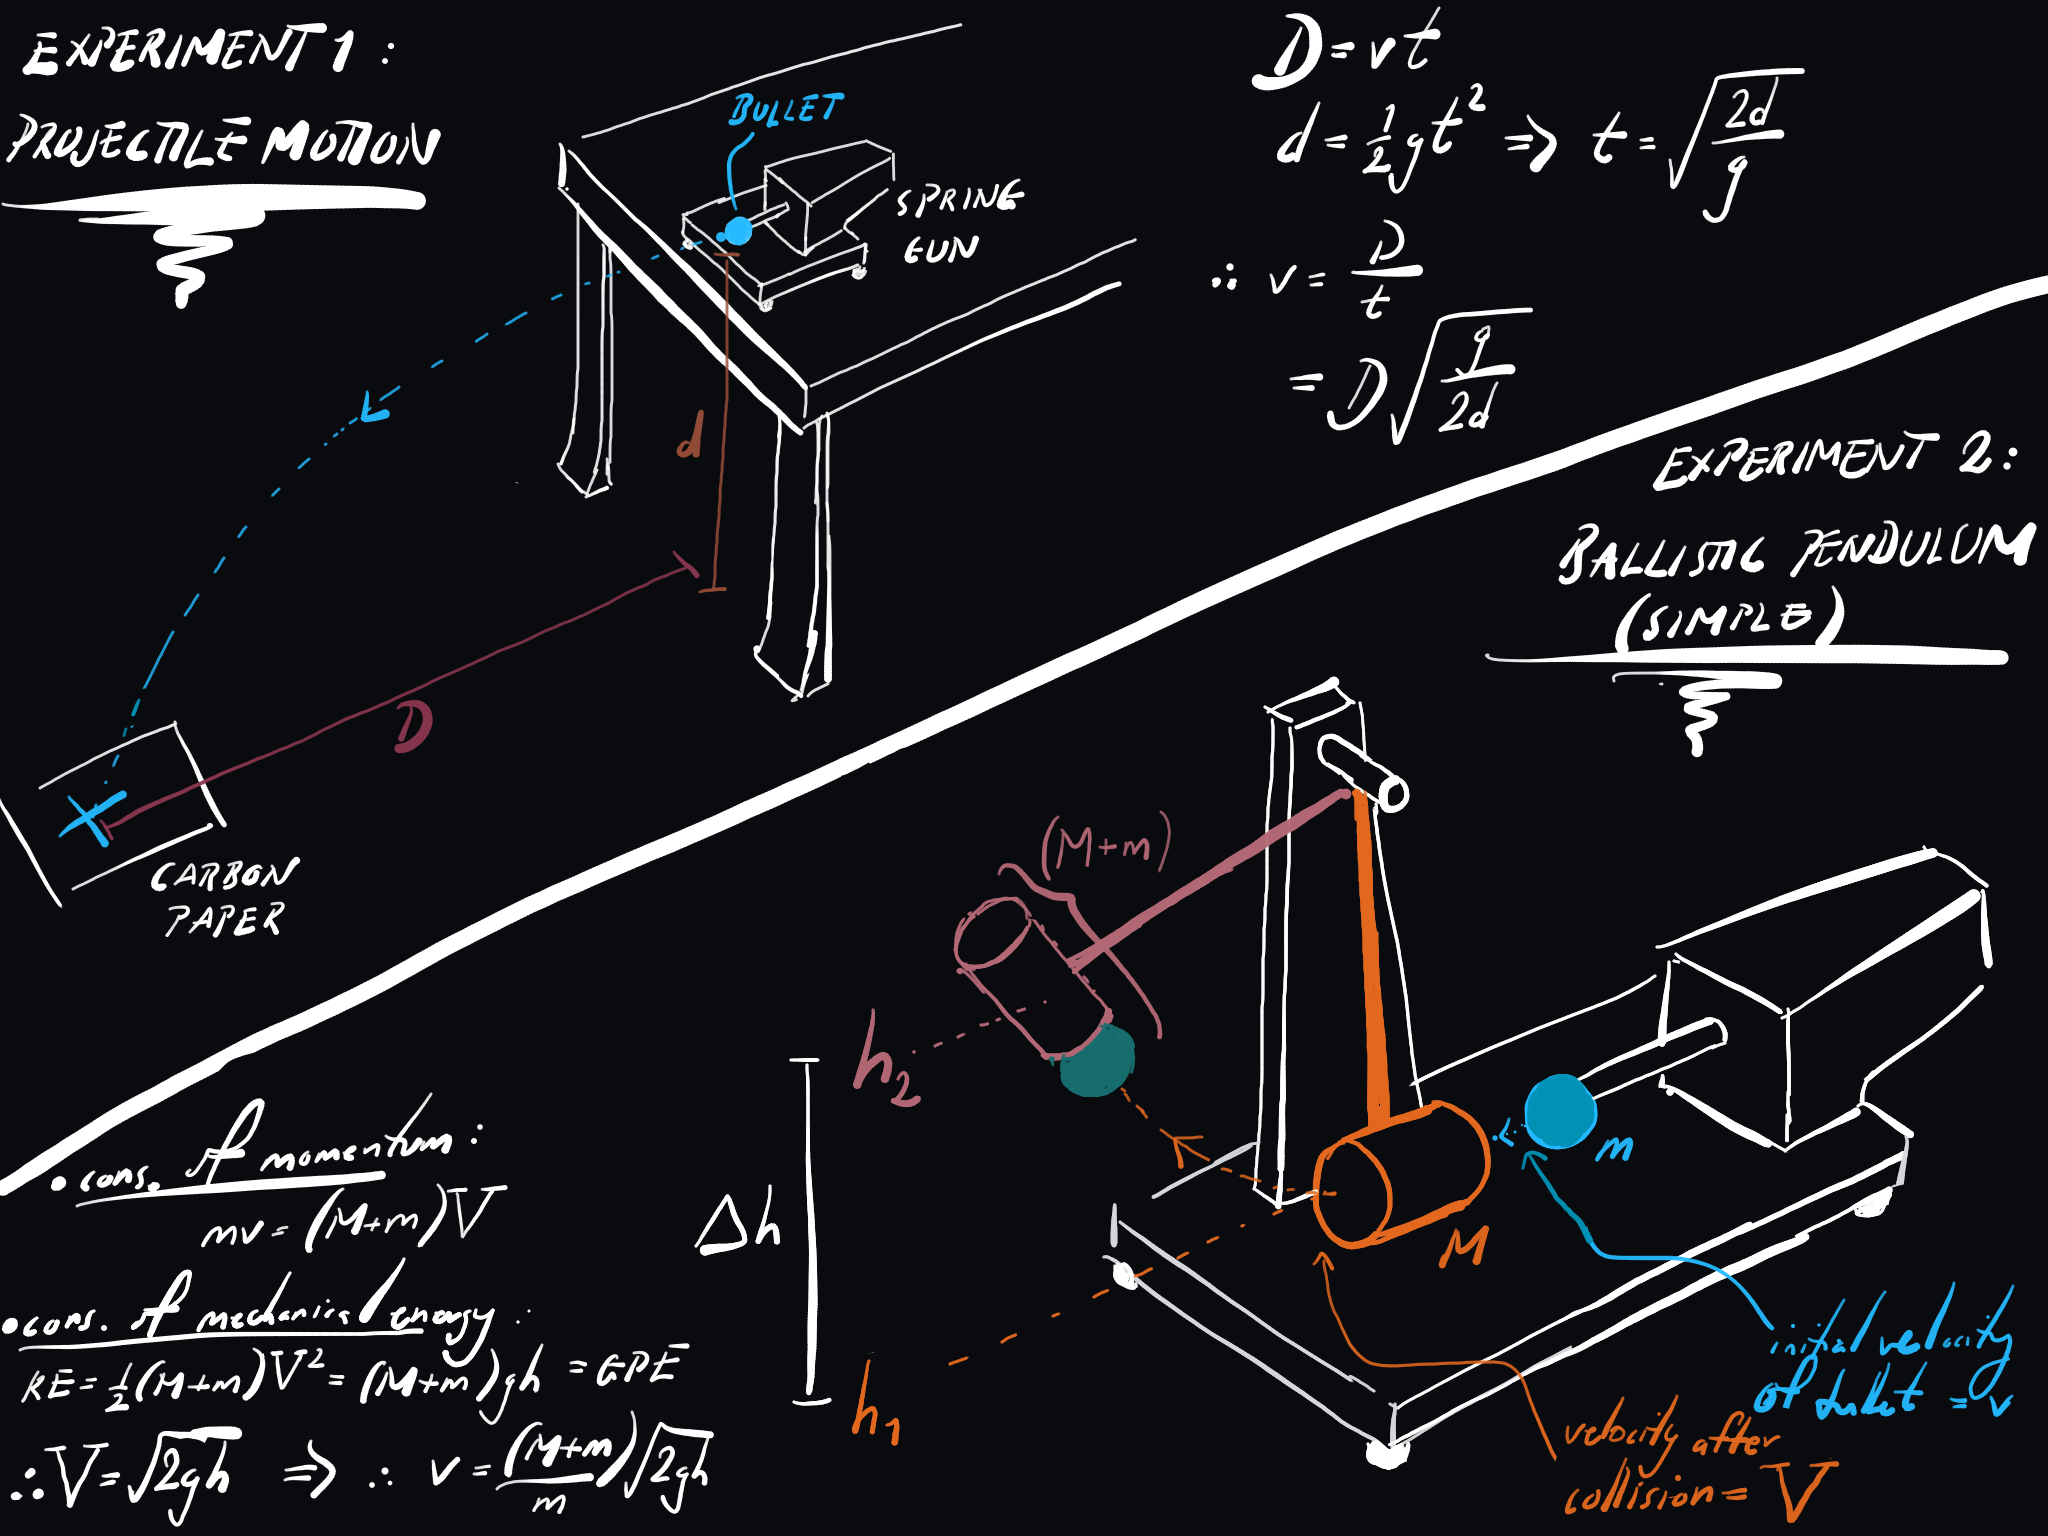 EXPERIMENT 1 :
PROJECTILE MOTION
BULLET
SPRING
GUN
d
D
CARBON
PAPER
D = vt
d = ½gt² ⇒ t = √(2d/g)
∴ v = D/t
= D√(g/2d)
EXPERIMENT 2 :
BALLISTIC PENDULUM
(SIMPLE)
(M+m)
h₂
Δh
h₁
m
M
initial velocity
of bullet = v
velocity after
collision = V
• cons. of momentum :
mv = (M+m)V
• cons. of mechanical energy :
KE = ½(M+m)V² = (M+m)gh = GPE
∴ V = √2gh ⇒ ∴ v = (M+m)/m √2gh